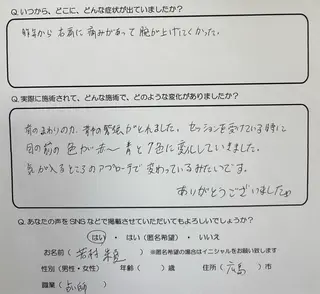 Q.いつから、どこに、どんな症状が出ていましたか？
昨年から右肩に痛みがあって腕が上げにくかった。
Q.実際に施術されて、どんな施術で、どのような変化がありましたか？
首のまわりの力、背中の緊張がとれました。セッションを受けている時に
目の前の色が赤〜青と7色に変化していきました。
気が入るところのアプローチで変わっているみたいです。
ありがとうございました
Q.あなたの声をSNSなどで掲載させていただいてもよろしいでしょうか？
はい ・ はい（匿名希望） ・ いいえ
お名前（ 若村 ）※匿名希望の場合はイニシャルをお願い致します
性別（男性・女性） 年齢（ ）歳 住所（ 広島 ）市
職業（ 占い師 ）